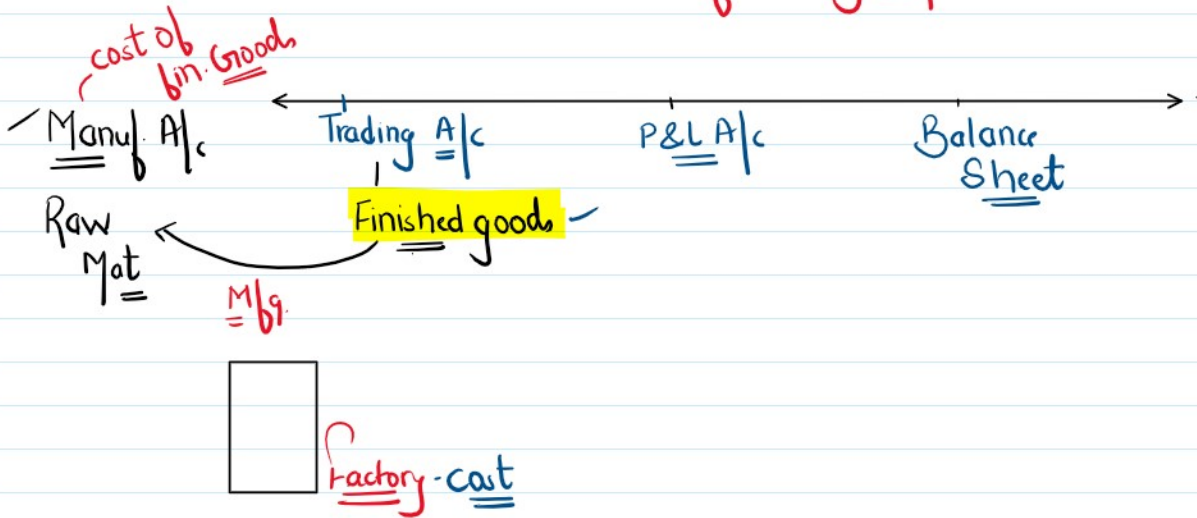 cost of
fin. Goods
Manuf. A/c
Trading A/c
P&L A/c
Balance
Sheet
Finished goods
Raw
Mat
Mfg.
Factory-cost